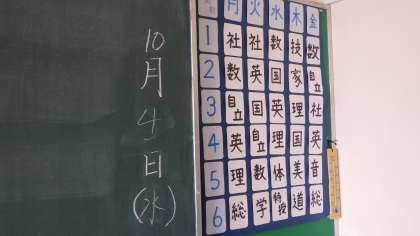 10月4日(水)
月 火 水 木 金
1 社 社 数 技 数
2 数 英 国 家 自立
3 自立 国 英 理 社
4 英 自立 理 国 英
5 理 数 体 美 音
6 総 学 特設 道 総